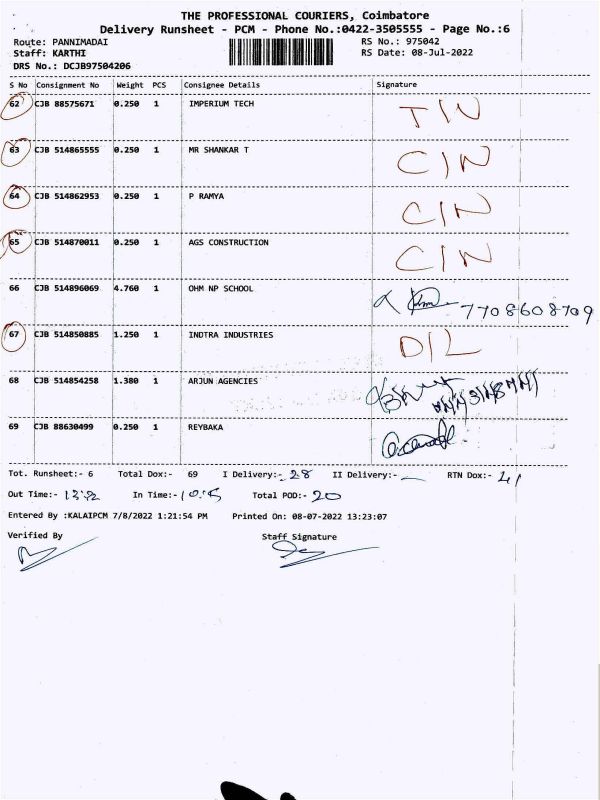 THE PROFESSIONAL COURIERS, Coimbatore
Delivery Runsheet - PCM - Phone No.:0422-3505555 - Page No.:6
Route: PANNIMADAI RS No.: 975042
Staff: KARTHI RS Date: 08-Jul-2022
DRS No.: DCJB97504206
S No Consignment No Weight PCS Consignee Details Signature
62 CJB 88575671 0.250 1 IMPERIUM TECH
63 CJB 514865555 0.250 1 MR SHANKAR T C/N
64 CJB 514862953 0.250 1 P RAMYA C/N
65 CJB 514870011 0.250 1 AGS CONSTRUCTION C/N
66 CJB 514896069 4.760 1 OHM NP SCHOOL 7708608709
67 CJB 514850885 1.250 1 INDTRA INDUSTRIES D/L
68 CJB 514854258 1.380 1 ARJUN AGENCIES
69 CJB 88630499 0.250 1 REYBAKA
Tot. Runsheet:- 6 Total Dox:- 69 I Delivery:- 28 II Delivery:- RTN Dox:- 41
Out Time:- In Time:- Total POD:- 20
Entered By :KALAIPCM 7/8/2022 1:21:54 PM Printed On: 08-07-2022 13:23:07
Verified By Staff Signature